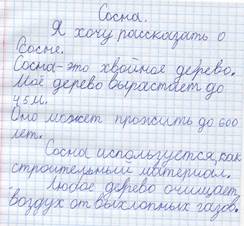 Сосна.
Я хочу рассказать о
сосне.
Сосна-это хвойное дерево.
Моё дерево вырастает до
45м.
Оно может прожить до 600
лет.
Сосна используется, как
строительный материал.
Любое дерево очищает
воздух от выхлопных газов.